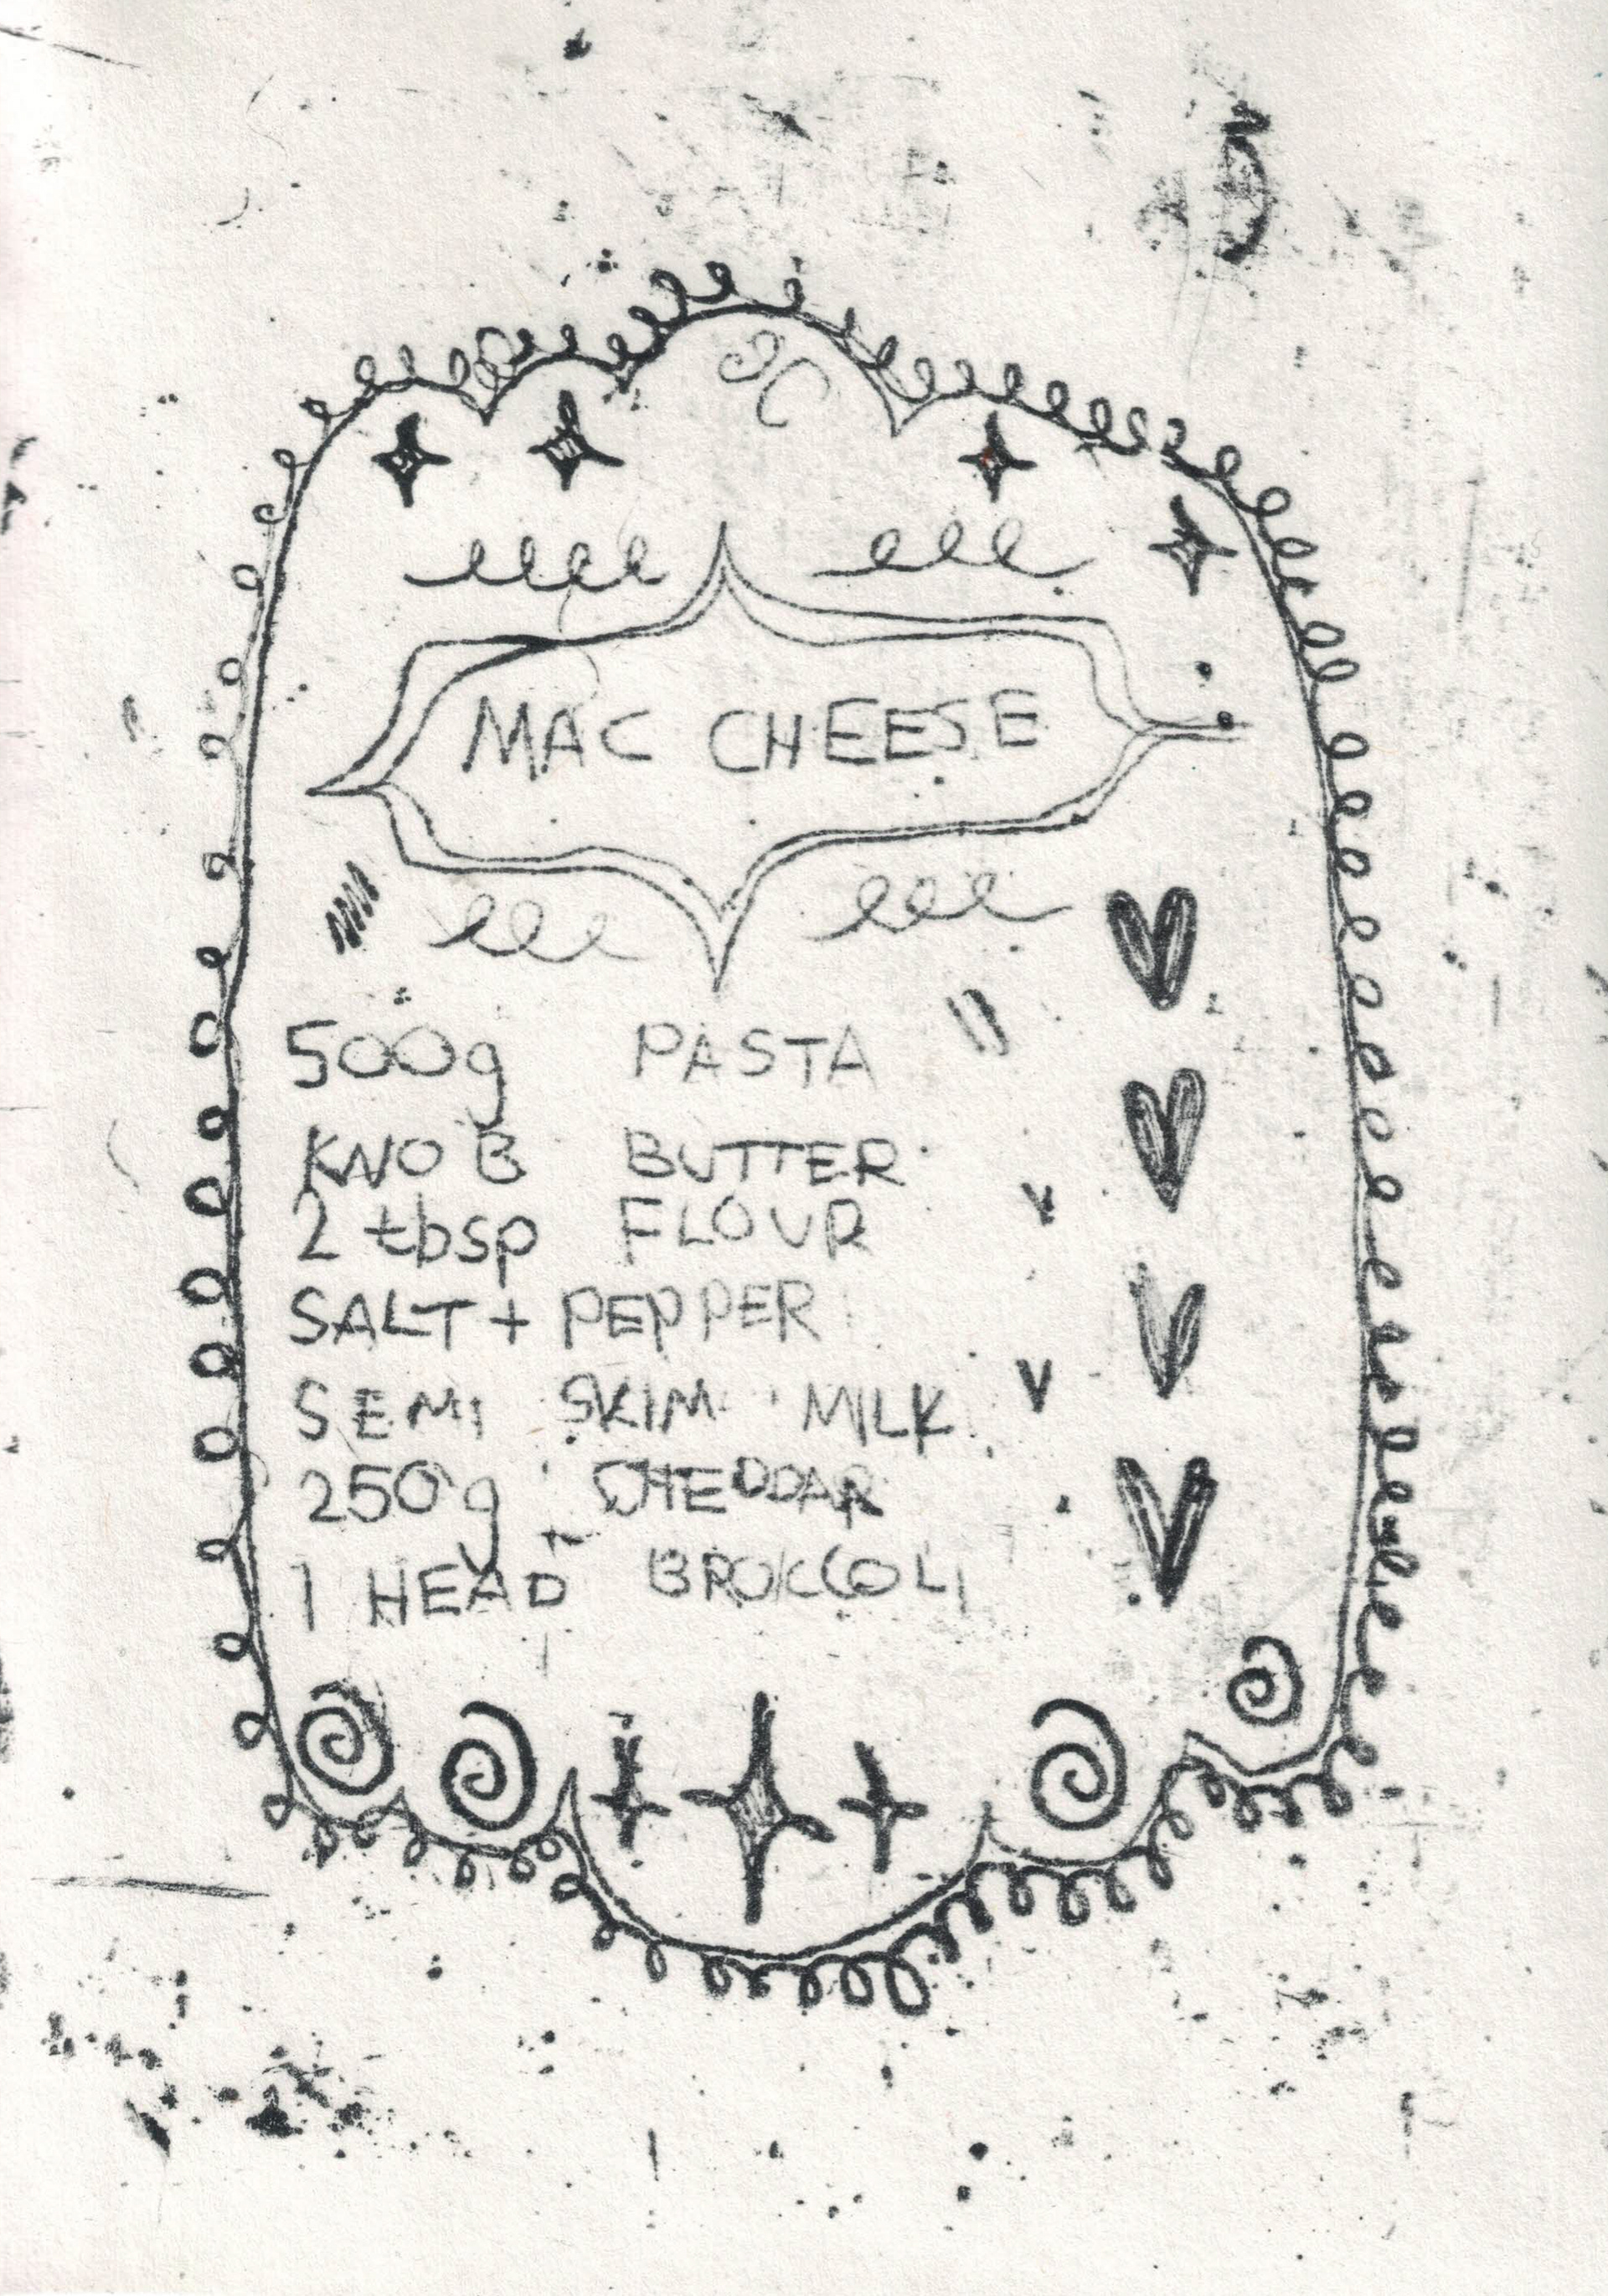 MAC CHEESE
500g PASTA
KNOB BUTTER
2 tbsp FLOUR
SALT + PEPPER
SEMI SKIM MILK
250g CHEDDAR
1 HEAD BROCCOLI